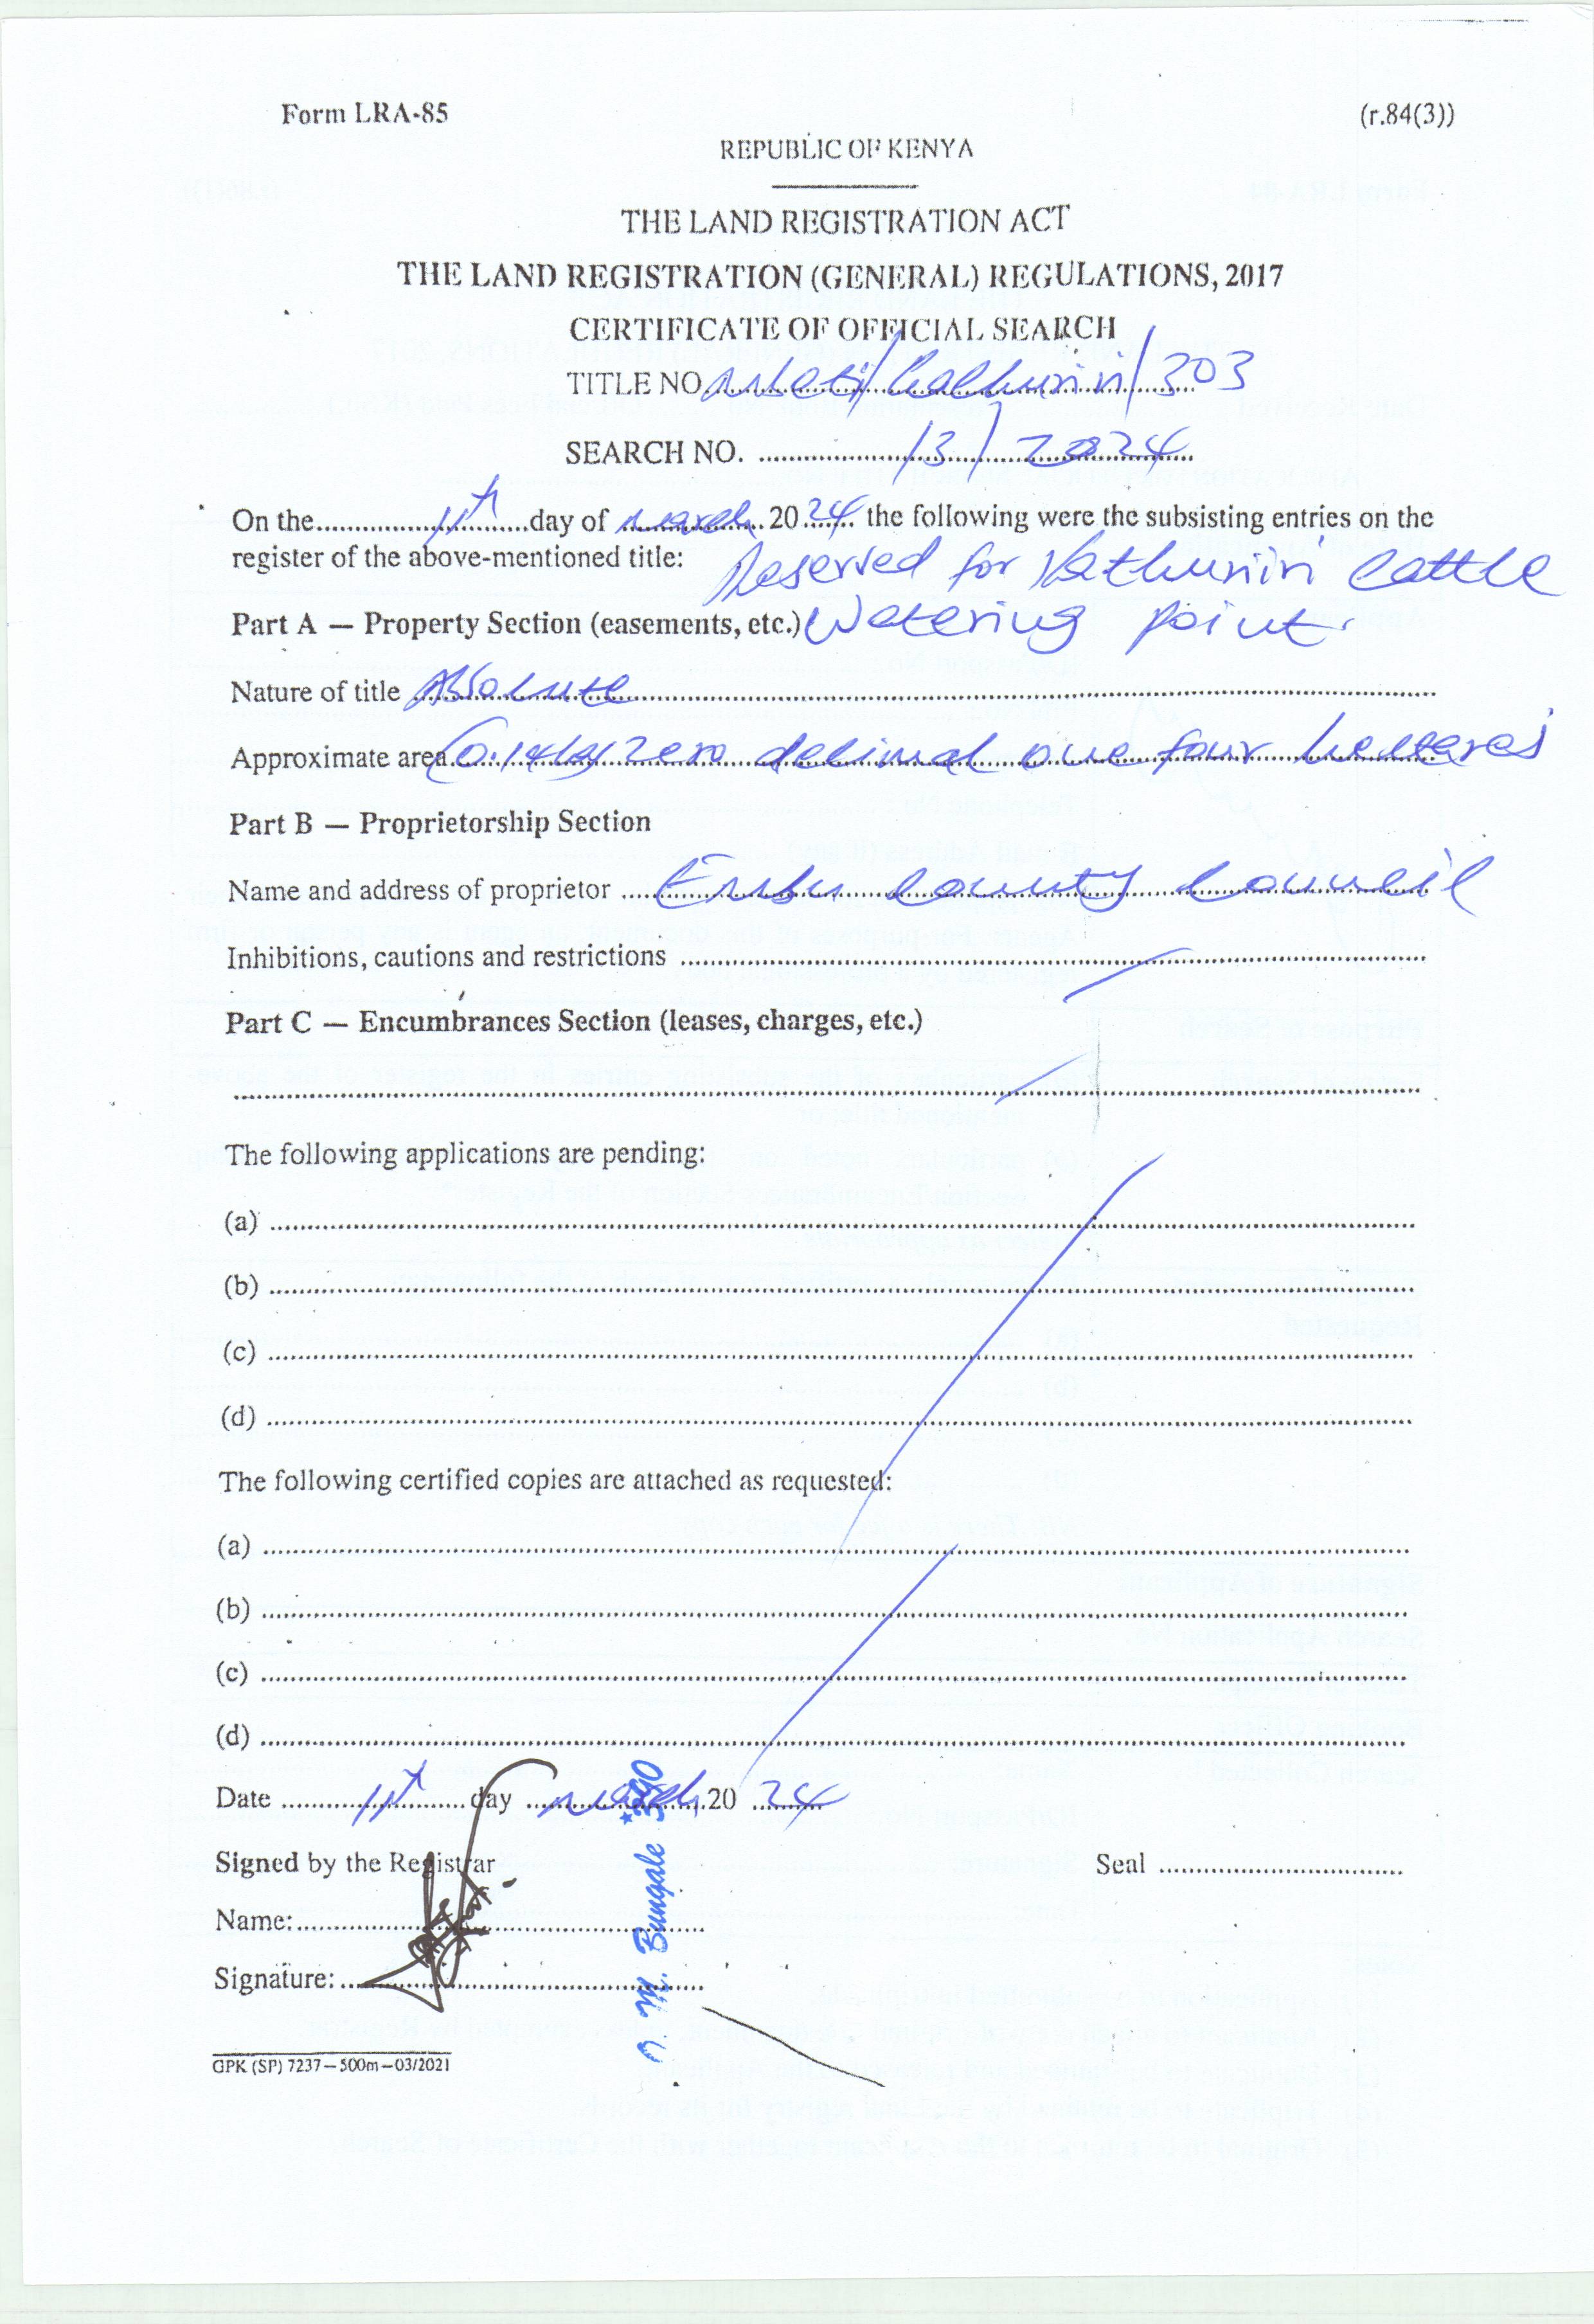 Form LRA-85 (r.84(3))
REPUBLIC OF KENYA
THE LAND REGISTRATION ACT
THE LAND REGISTRATION (GENERAL) REGULATIONS, 2017
CERTIFICATE OF OFFICIAL SEARCH
TITLE NO. /303
SEARCH NO. /3/2024
On the 11th day of March 2024 the following were the subsisting entries on the
register of the above-mentioned title: Reserved for Kathuriri Cattle
Part A — Property Section (easements, etc.) Watering point.
Nature of title Absolute
Approximate area (0.14ha) zero decimal one four hectares
Part B — Proprietorship Section
Name and address of proprietor Embu County Council
Inhibitions, cautions and restrictions
Part C — Encumbrances Section (leases, charges, etc.)
The following applications are pending:
(a)
(b)
(c)
(d)
The following certified copies are attached as requested:
(a)
(b)
(c)
(d)
Date 11th day March 2024
Signed by the Registrar Seal
Name:
Signature:
M. Bungale
GPK (SP) 7237—500m—03/2021